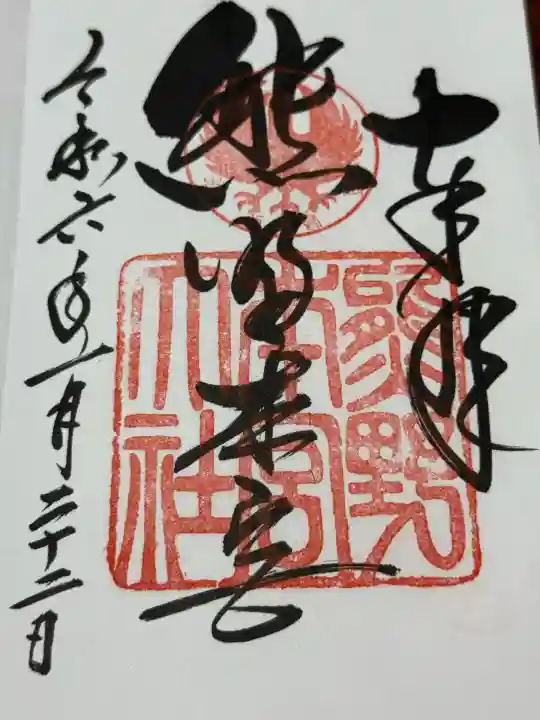 奉拝
熊野本宮
令和六年一月二十二日
熊野
本宮
大社